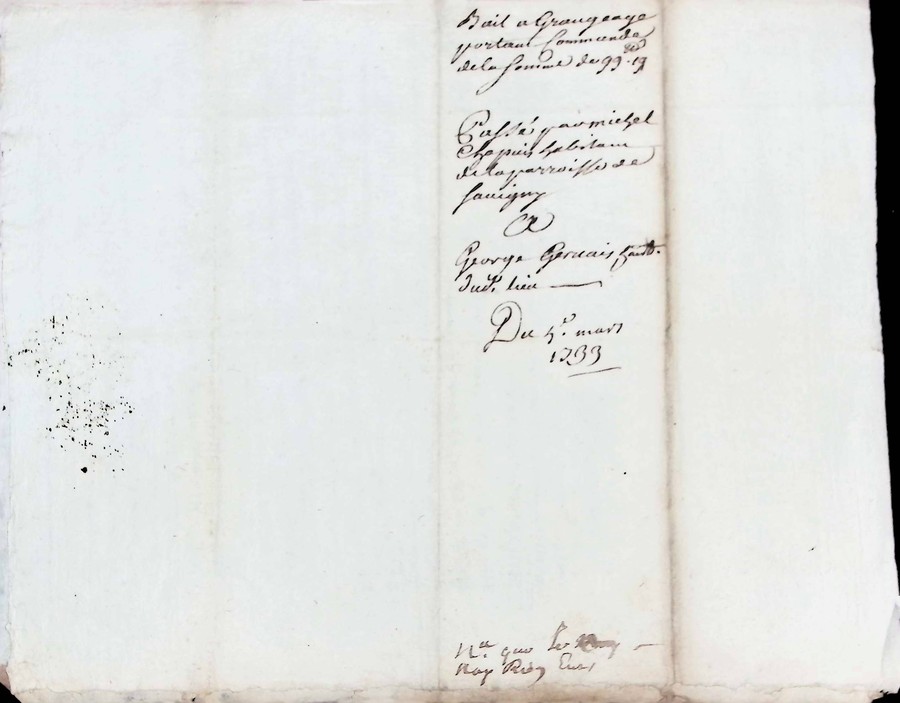 Bail a Grangeage
portant Commande
de la somme de 99ᵗᵗ 19
Passé par michel
Chepuis habitant
de la parroisse de
Savigny
A
George Gervais habt.
dudt. lieu
Du 5e. mars
1733
Na. que le